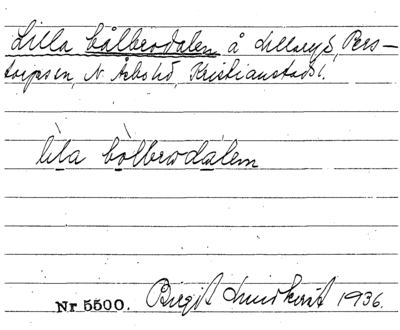 Lilla bålbrodalen å Lillaryd, Pers-
torps sn, N. Åsbo hd, Kristianstads l.
lìla bòlbrodalem
Nr 5500. Birgit Lundkvist 1936.